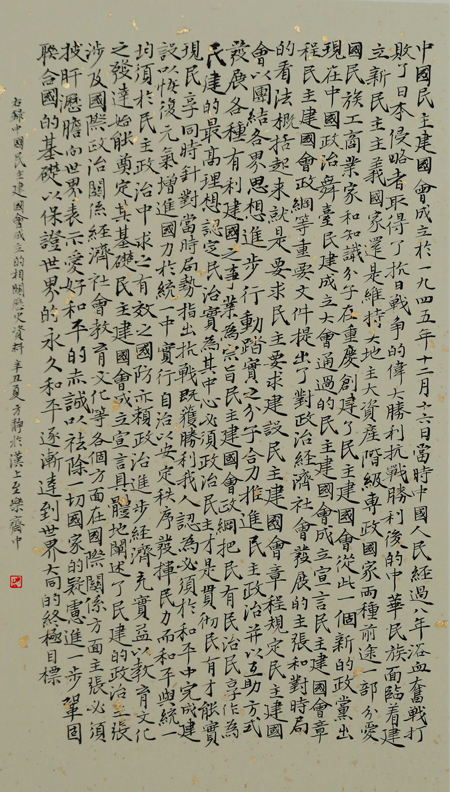 中國民主建國會成立於一九四五年十二月十六日當時中國人民經過八年浴血奮戰打
敗了日本侵略者取得了抗日戰争的偉大勝利抗戰勝利後的中華民族面臨着建
立新民主主義國家還是維持大地主大資産階級專政國家兩種前途一部分愛
國民族工商業家和知識分子在重慶創建了民主建國會從此一個新的政黨出
現在中國政治舞臺民建成立大會通過的民主建國會成立宣言民主建國會章
程民主建國會政綱等重要文件提出了對政治經濟社會發展的主張和對時局
的看法概括起来就是要求民主要求建設民主建國會章程規定民主建國
會以團結各界思想進步行動踏實之分子合力推進民主政治并以互助方式
發展各種有利建國之事業為宗旨民主建國會政綱把民有民治民享作為
民建的最高理想認定民治實為其中心必須政治民主才是貫彻民有才能實
現民享同時針對當時局勢指出抗戰既獲勝利我人認為必須於和平中完成建
設以恢復元氣增進國力於統一中實行自治以安定秩序發揮民力而和平與統一
均須於民主政治中求之有效之國防亦賴政治進步經濟充實益以教育文化
之發達始能奠定其基礎民主建國會成立宣言具體地闡述了民建的政治主張
涉及國際政治關係經濟社會教育文化等各個方面在國際關係方面主張必須
披肝瀝膽向世界表示愛好和平的赤誠以祛除一切國家的疑慮進一步鞏固
聯合國的基礎以保證世界的永久和平逐漸達到世界大同的終極目標
右録中國民主建國會成立的相關歷史資料辛丑夏方静於漢上至樂齋中